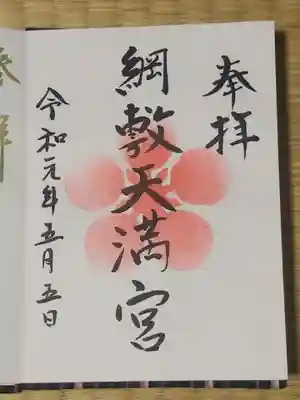 奉拝
綱敷天満宮
令和元年五月五日
奉拝